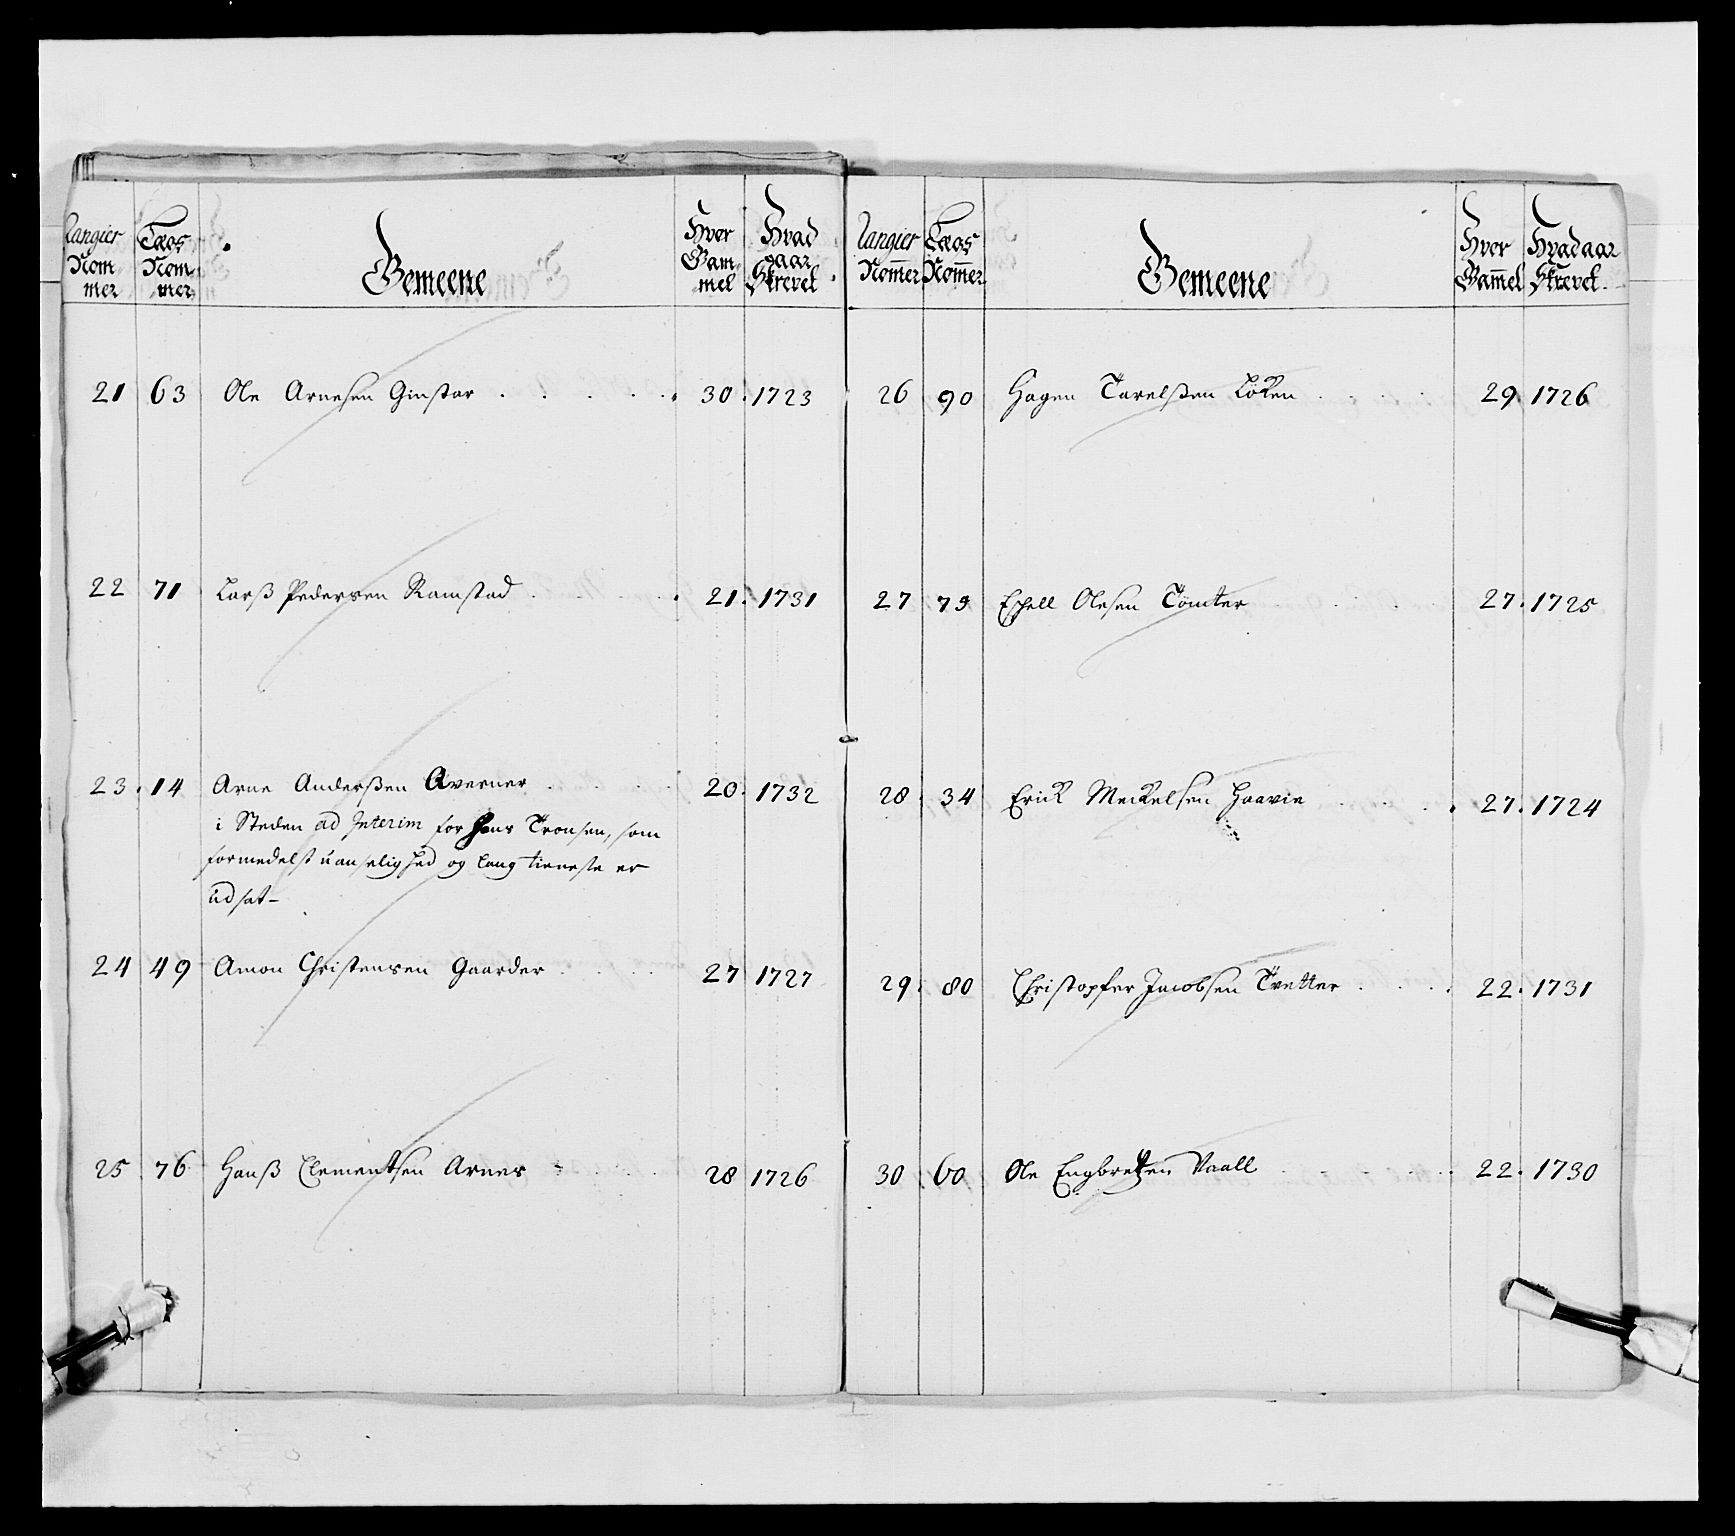 Rangier Nom mer | Lægs Nom mer | Gemeene | Hver Gam mel | Hvad aar Skrevet
21 63 Ole Arnesen Ginstar 30 1723
22 71 Larß Pedersen Ramstad 21 1731
23 14 Arne Anderßen Averner 20 1732
i Steden ad Interim for Hans Tronsen, som
formedelst uanselighed og lang tieneste er
udsat
24 49 Amon Christensen Gaarder 27 1727
25 76 Hanß Clementsen Arnes 28 1726
Rangier Nom̅er | Lægs Nom̅er | Gemeene | Hver Gam̅el | Hvad aar Skrevet
26 90 Hagen Tarelßen Løken 29 1726
27 79 Eschell Olesen Tomter 27 1725
28 34 Erick Meckelsen Haavie 27 1724
29 80 Christopfer Jacobsen Tvetter 22 1731
30 60 Ole Engbretsen Vaall 22 1730